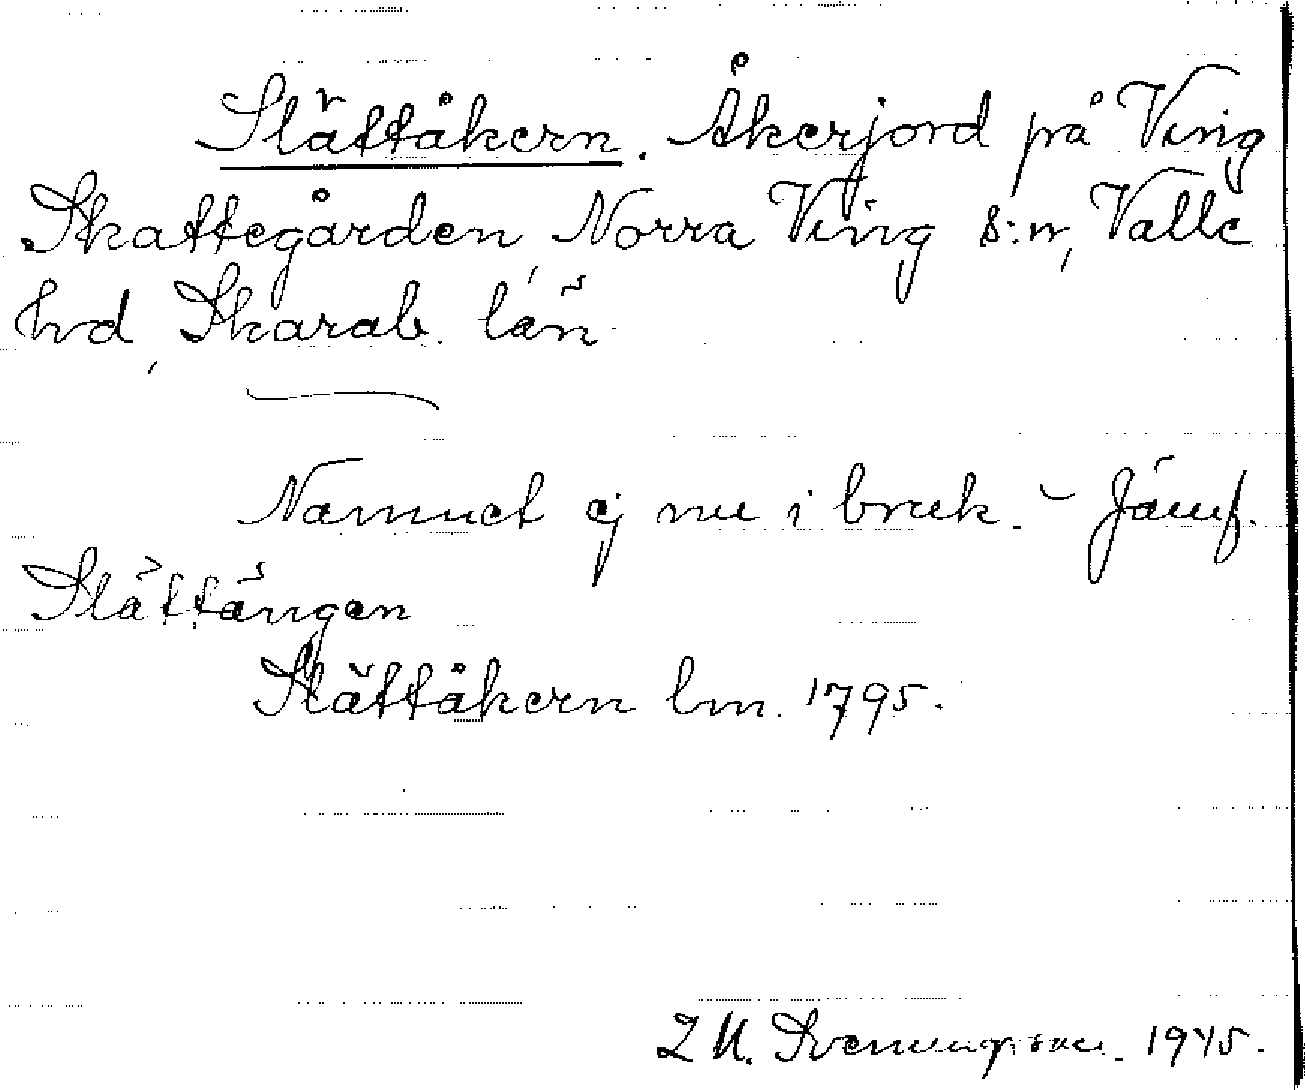 Slättåkern. Åkerjord på Ving
Skattegården, Norra Ving s:n, Valle
hd, Skarab. län
Namnet ej nu i bruk. - Jämf.
Slättängen
Slättåkern lm. 1795.
Svenungsson. 1945.